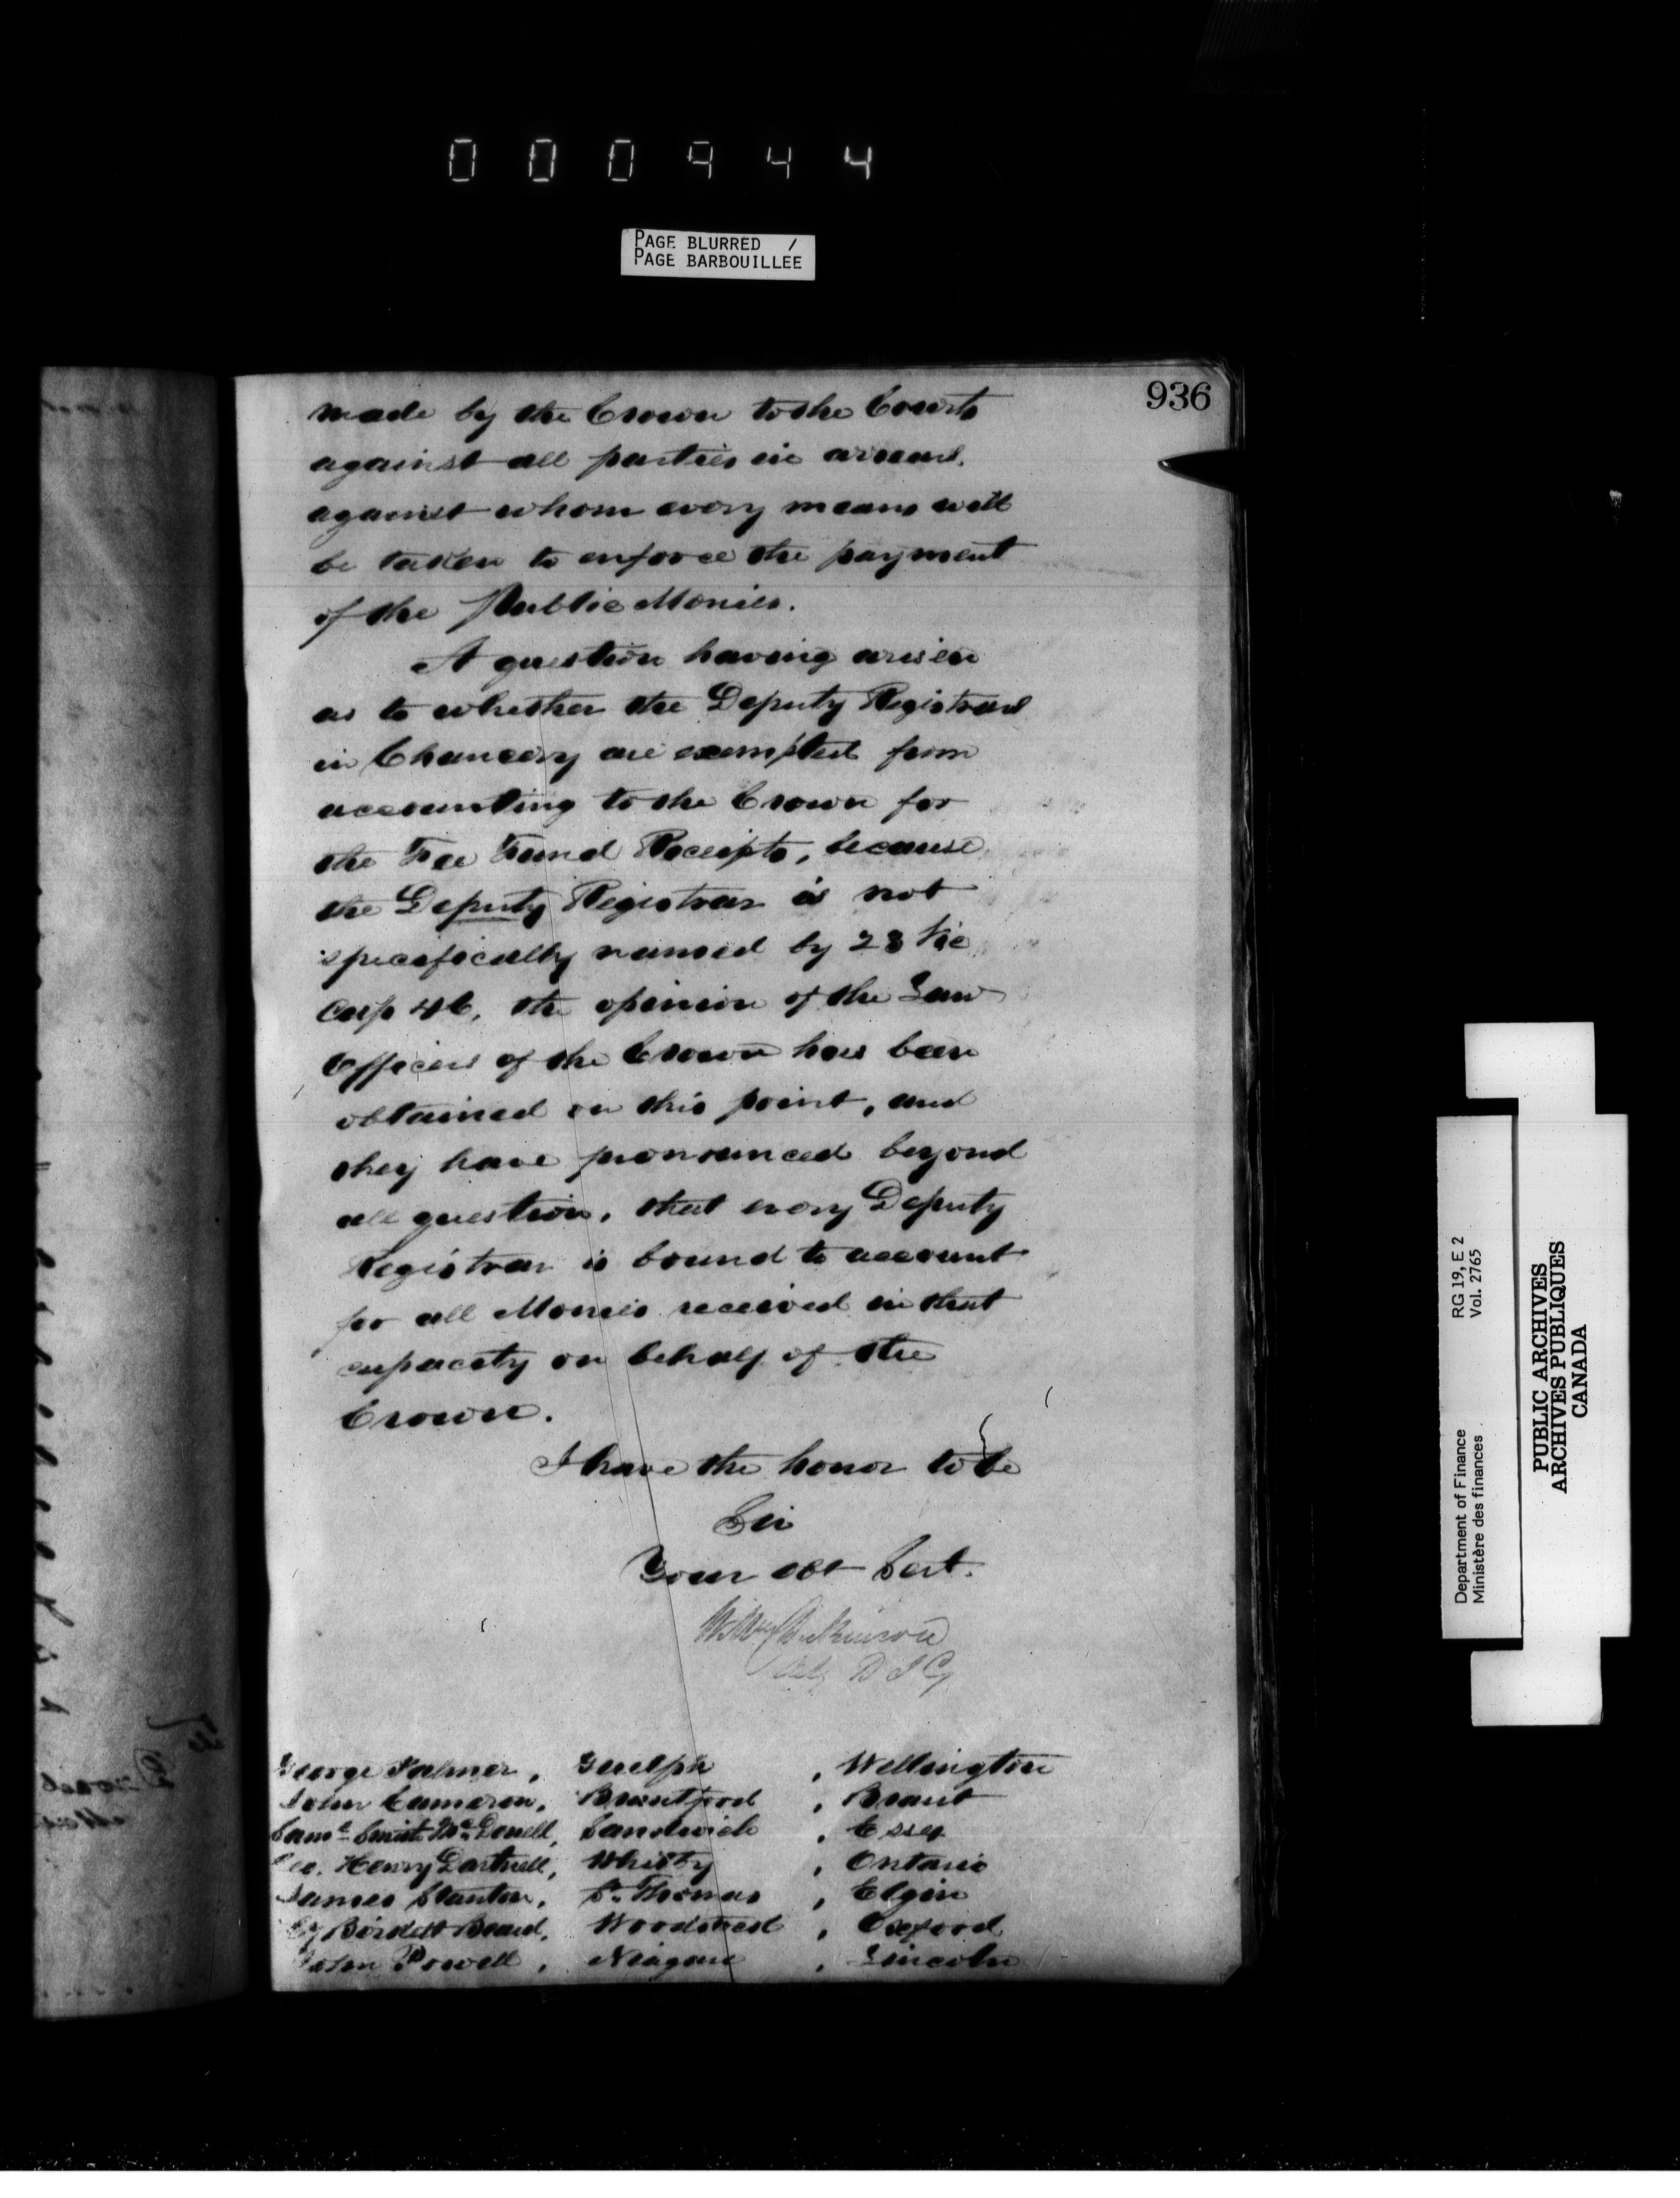 000944
PAGE BLURRED /
PAGE BARBOUILLEE
936
made by the Crown to the Courts
against all parties in arrears,
against whom every means will
be taken to enforce the payment
of the Public Monies.
A question having arisen
as to whether the Deputy Registrars
in Chancery are exempted from
accounting to the Crown for
the Fee Fund Receipts, because
the Deputy Registrar is not
specifically named by 23 Vic
Cap 46, the opinion of the Law
Officers of the Crown has been
obtained on this point, and
they have pronounced beyond
all question, that every Deputy
Registrar is bound to account
for all Monies received in that
capacity on behalf of the
Crown.
I have the honor to be
Sir
Your obt Sert.
Wm Dickinson
D I G
George Palmer, Guelph, Wellington
John Cameron, Brantford, Brant
Saml Smith McDonell, Sandwich, Essex
Geo. Henry Dartnell, Whitby, Ontario
James Stanton, St. Thomas, Elgin
Burdett Beard, Woodstock, Oxford
John Powell, Niagara, Lincoln
Department of Finance RG 19, E 2
Ministère des finances Vol. 2765
PUBLIC ARCHIVES
ARCHIVES PUBLIQUES
CANADA